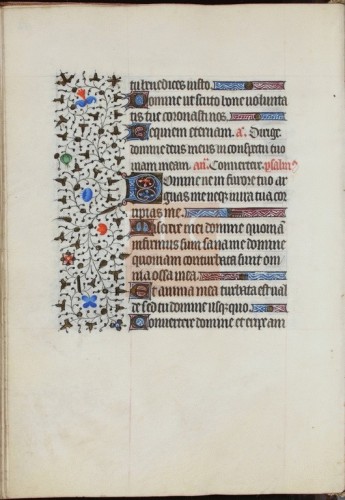 tu benedices iusto.
Domine ut scuto bone volunta
tis tue coronasti nos.
Requiem eternam. a. Dirige
domine deus meus in conspectu tuo
viam meam. an. Convertere. psalm
Domine ne in furore tuo ar
guas me neqz in ira tua cor
ripias me.
Miserere mei domine quoniam
infirmus sum sana me domine
quoniam conturbata sunt om
nia ossa mea.
Et anima mea turbata est val
de sed tu domine usqz quo.
Convertere domine et eripe am